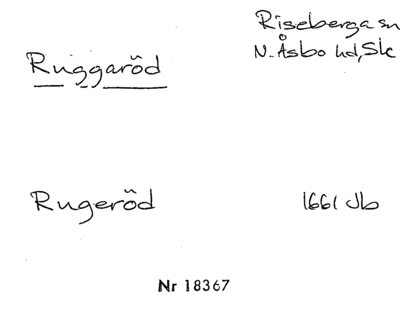 Riseberga sn
Ruggaröd
N. Åsbo hd, Sk
Rugeröd
1661 Jb
Nr 18367